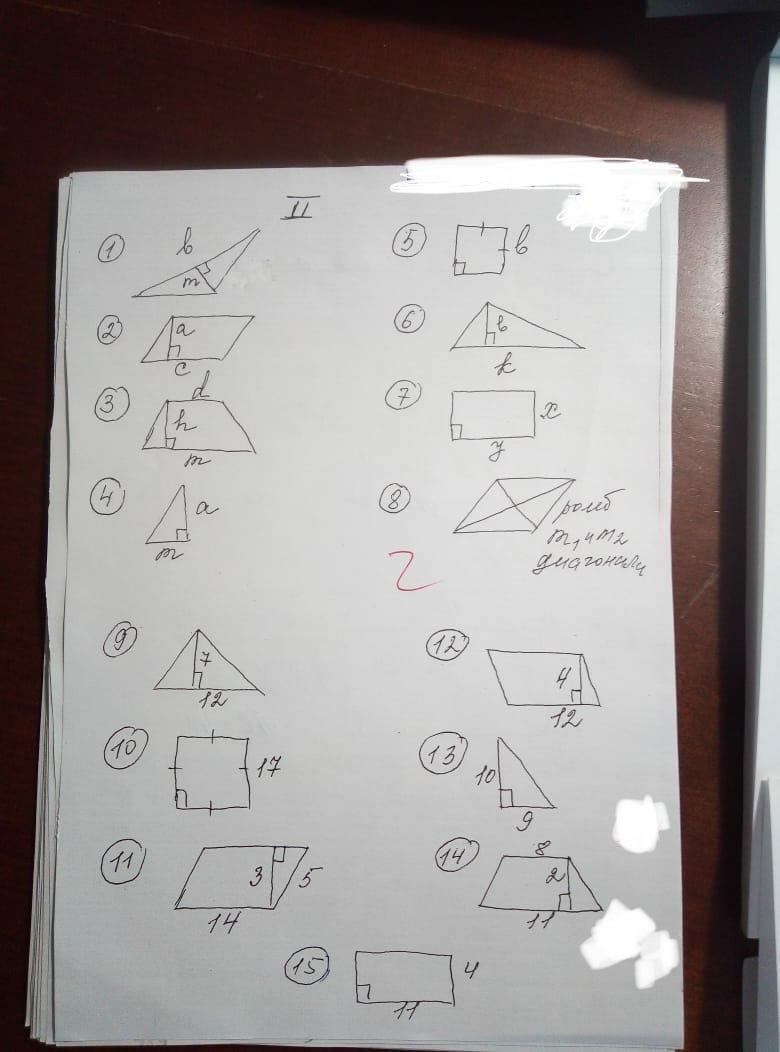 II
1 b m
2 a c
3 d h m
4 a m
5 b
6 b k
7 x y
8 ромб
m₁ и m₂
диагонали
2
9 7 12
10 17
11 3 5 14
12 4 12
13 10 9
14 8 2 11
15 4 11